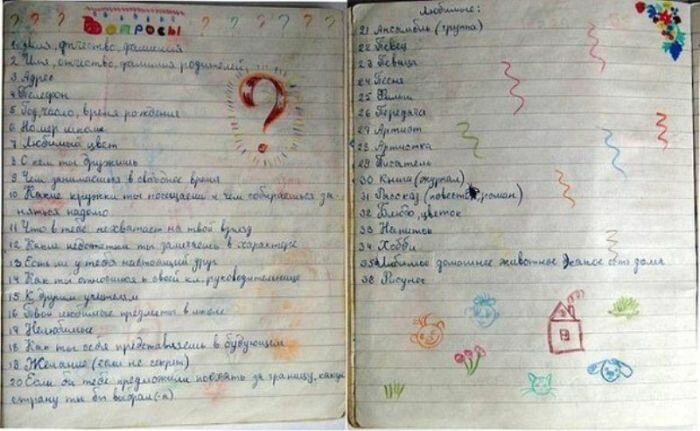 ? ? ? ? ? ? ? ?
Вопросы
1 Имя, отчество, фамилия
2 Имя, отчество, фамилия родителей
3 Адрес
4 Телефон
5 Год, число, время рождение
6 Номер школы
7 Любимый цвет
8 С кем ты дружишь
9 Чем занимаешься в свободное время
10 Какие кружки ты посещаешь и чем собираешься за-
няться надомо
11 Что в тебе не хватает на твой взгляд
12 Какие недостатки ты замечаешь в характере
13 Есть ли у тебя настоящий друг
14 Как ты относишься к своей кл. руководительнице
15 К другим учителям
16 Твои любимые предметы в школе
17 Нелюбимые
18 Как ты себя представляешь в будующем
19 Желание (если не секрет)
20 Если бы тебе предложили поехать за границу, какую
страну ты бы выбрал(-а)
?
Любимые:
21 Ансамбль (группа)
22 Певец
23 Певица
24 Песня
25 Фильм
26 Передача
27 Артист
28 Артистка
29 Писатель
30 Книга (журнал)
31 Рассказ (повесть, роман)
32 Блюдо, цветок
33 Напиток
34 Хобби
35 Любимое домашнее животное какое есть дома
36 Рисунок